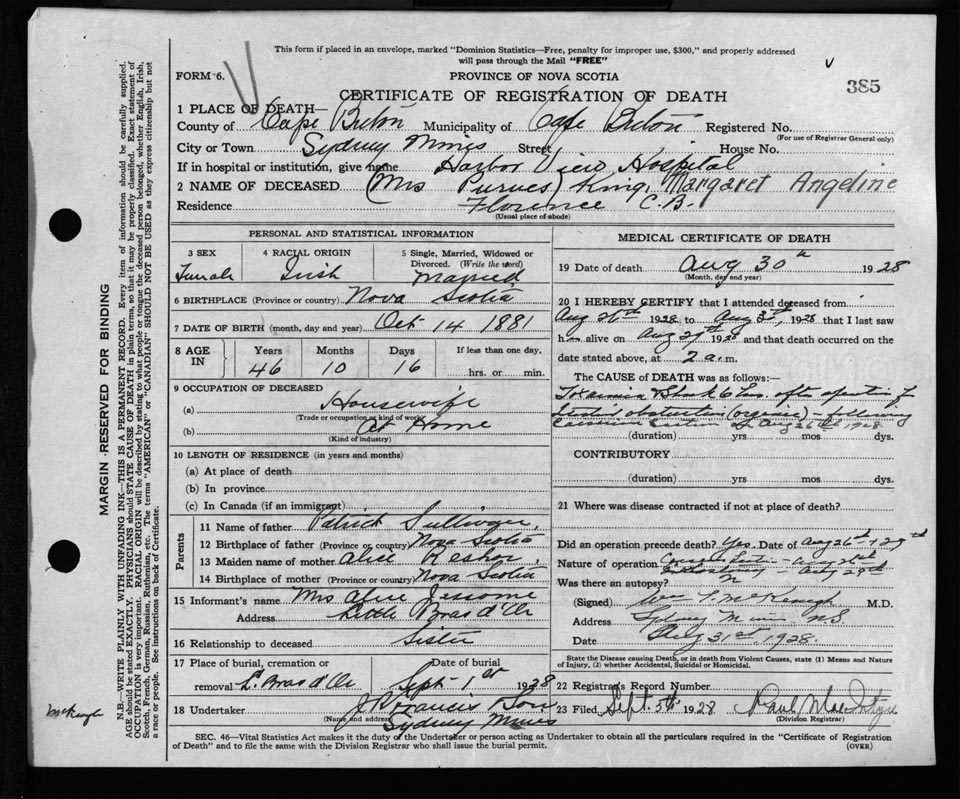 This form if placed in an envelope, marked "Dominion Statistics—Free, penalty for improper use, $300," and properly addressed
will pass through the Mail "FREE"
FORM 6.
PROVINCE OF NOVA SCOTIA
385
CERTIFICATE OF REGISTRATION OF DEATH
1 PLACE OF DEATH—
County of Cape Breton Municipality of Cape Breton Registered No.
(For use of Registrar General only)
City or Town Sydney Mines Street House No.
If in hospital or institution, give name Harbor View Hospital
2 NAME OF DECEASED (Mrs Purves) King, Margaret Angeline
Residence Florence C.B.
(Usual place of abode)
PERSONAL AND STATISTICAL INFORMATION
3 SEX 4 RACIAL ORIGIN 5 Single, Married, Widowed or
Divorced. (Write the word)
Female Irish Married
6 BIRTHPLACE (Province or country) Nova Scotia
7 DATE OF BIRTH (month, day and year) Oct 14 1881
8 AGE IN Years Months Days If less than one day,
46 10 16 hrs. or min.
9 OCCUPATION OF DECEASED
(a) Housewife
(Trade or occupation or kind of work)
(b) At Home
(Kind of industry)
10 LENGTH OF RESIDENCE (in years and months)
(a) At place of death
(b) In province
(c) In Canada (if an immigrant)
Parents
11 Name of father Patrick
12 Birthplace of father (Province or country) Nova Scotia
13 Maiden name of mother Alice
14 Birthplace of mother (Province or country) Nova Scotia
15 Informant's name Mrs Alfred Jessome
Address Little Bras d'Or
16 Relationship to deceased Sister
17 Place of burial, cremation or Date of burial
removal L. Bras d'Or Sept 1st 1928
18 Undertaker J Francis Son
(Name and address) Sydney Mines
MEDICAL CERTIFICATE OF DEATH
19 Date of death Aug 30th 1928
(Month, day and year)
20 I HEREBY CERTIFY that I attended deceased from
Aug 26th 1928 to Aug 1928 that I last saw
h alive on Aug 29th 1928 and that death occurred on the
date stated above, at 2 a.m.
The CAUSE of DEATH was as follows:—
Toxaemia & Shock 6 hrs. after operation for
obstruction (organic) - following
Caesarian Section of Aug 26th 1928.
(duration) yrs mos dys.
CONTRIBUTORY
(duration) yrs mos dys.
21 Where was disease contracted if not at place of death?
Did an operation precede death? Yes. Date of Aug 26th & 29th
Nature of operation Aug 26th
Aug 29th
Was there an autopsy? N
(Signed) Wm T. McKeough M.D.
Address Sydney Mines N.S
Date 31st 1928.
State the Disease causing Death, or in death from Violent Causes, state (1) Means and Nature
of Injury, (2) whether Accidental, Suicidal or Homicidal.
22 Registrar's Record Number
23 Filed Sept. 5th 1928
(Division Registrar)
SEC. 46—Vital Statistics Act makes it the duty of the Undertaker or person acting as Undertaker to obtain all the particulars required in the "Certificate of Registration
of Death" and to file the same with the Division Registrar who shall issue the burial permit.
(OVER)
MARGIN RESERVED FOR BINDING
N.B.—WRITE PLAINLY WITH UNFADING INK—THIS IS A PERMANENT RECORD. Every item of information should be carefully supplied.
AGE should be stated EXACTLY. PHYSICIANS should STATE CAUSE OF DEATH in plain terms, so that it may be properly classified. Exact statement of
OCCUPATION is very important. RACIAL ORIGIN will be described by stating to what people or tongue the deceased person belonged, whether English, Irish,
Scotch, French, German, Russian, Ruthenian, etc. The terms "AMERICAN" or "CANADIAN" SHOULD NOT BE USED as they express citizenship but not
a race or people. See instructions on back of Certificate.